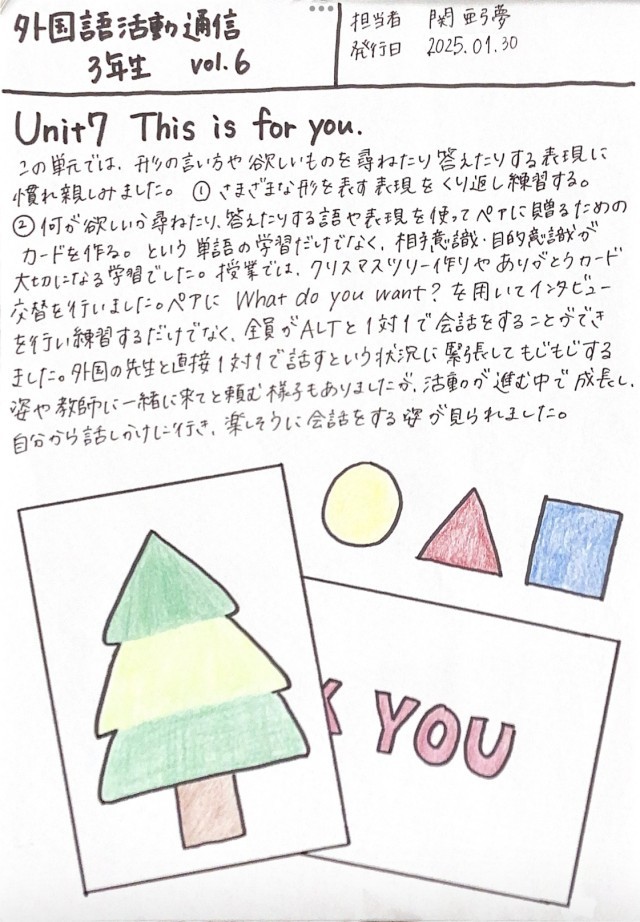 外国語活動通信
3年生 vol.6
担当者 関 亜弓夢
発行日 2025.01.30
Unit7 This is for you.
この単元では、形の言い方や欲しいものを尋ねたり答えたりする表現に
慣れ親しみました。 ① さまざまな形を表す表現をくり返し練習する。
② 何が欲しいか尋ねたり、答えたりする語や表現を使ってペアに贈るための
カードを作る。という単語の学習だけでなく、相手意識・目的意識が
大切になる学習でした。授業では、クリスマスツリー作りやありがとうカード
交替を行いました。ペアに What do you want? を用いてインタビュー
を行い練習するだけでなく、全員がALTと1対1で会話をすることができ
ました。外国の先生と直接1対1で話すという状況に緊張してもじもじする
姿や教師に一緒に来てと頼む様子もありましたが、活動が進む中で成長し、
自分から話しかけに行き、楽しそうに会話をする姿が見られました。
K YOU